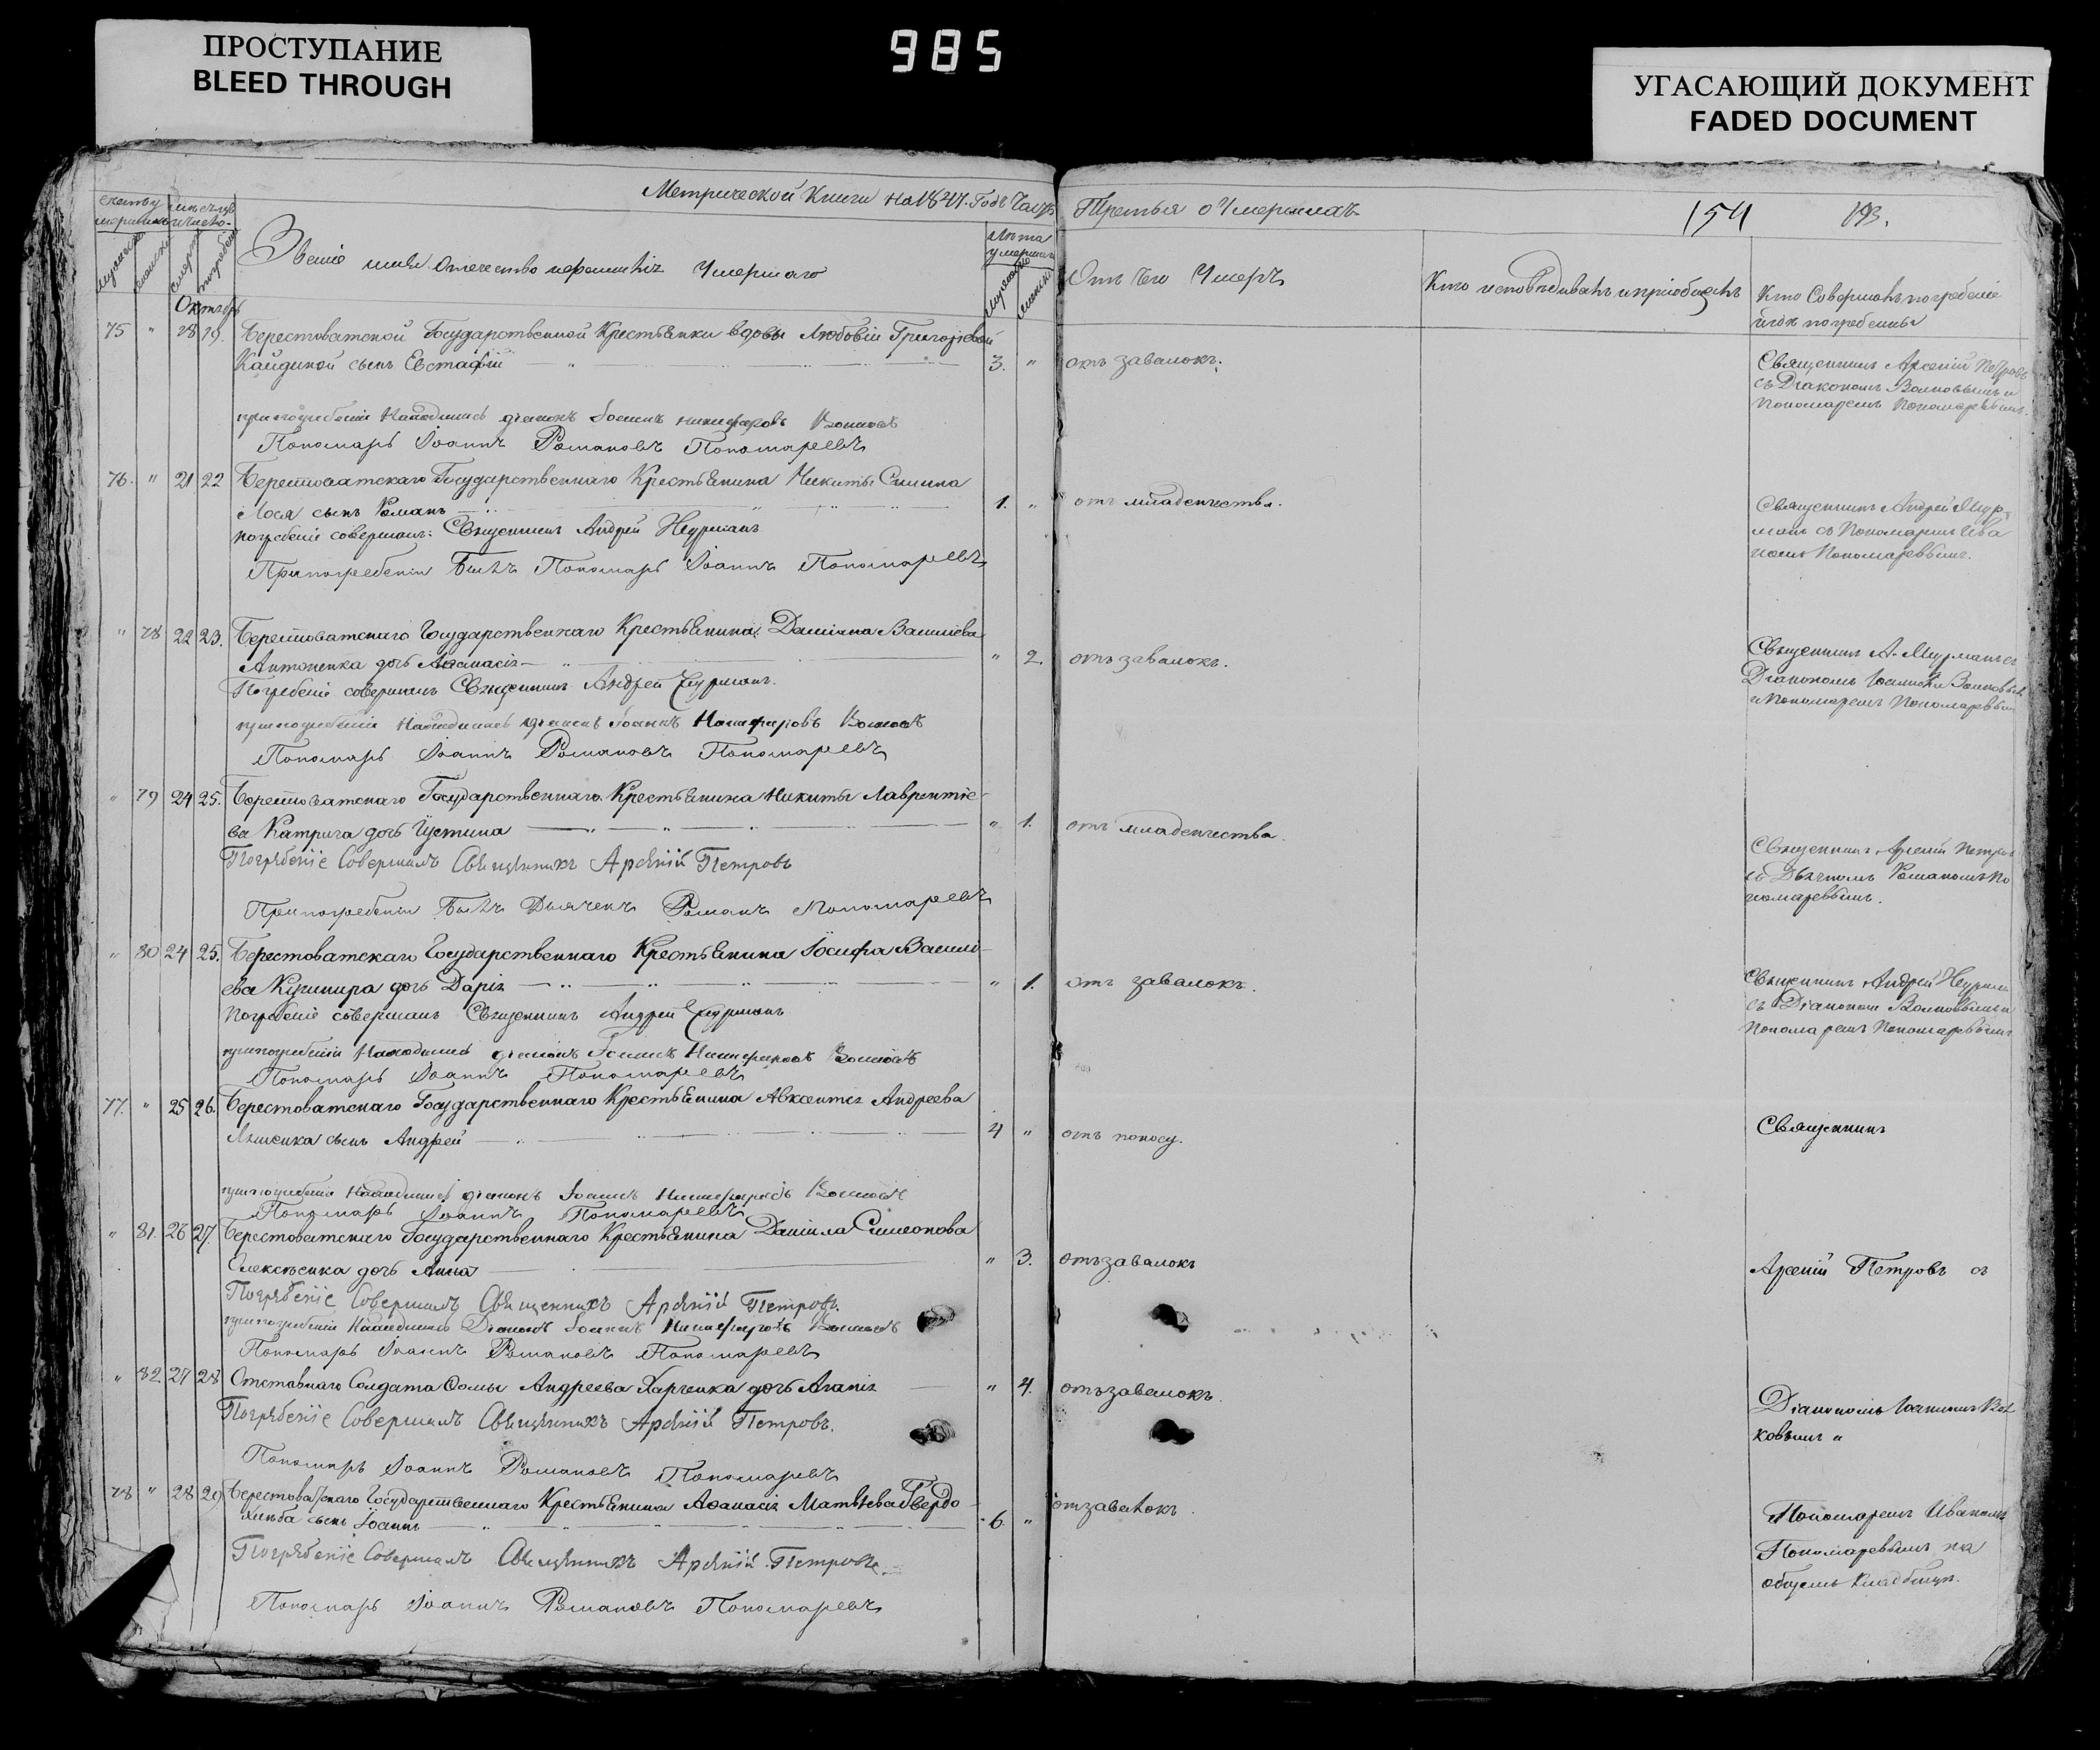 ПРОСТУПАНИЕ
BLEED THROUGH
985
УГАСАЮЩИЙ ДОКУМЕНТ
FADED DOCUMENT
Метрической Книги на 1847. Годъ Часть
Третья о Умершихъ
154
193.
Званіе имя отечество и фамилія Умершаго
лѣта умершаго
Отъ чего Умеръ
Кто исповѣдывалъ и пріобщалъ
Кто Совершалъ погребеніе
и гдѣ погребены
Октябрь
75 " 18 19. Берестоватской Государственной Крестьянки вдовы Любовіи Григорьевой
Кайдиной сынъ Евстафій 3. " отъ завалокъ.
Священникъ Арсеній Петровъ
съ Діакономъ Волковымъ и
Пономаремъ Пономаревымъ.
при погребеніи находились діаконъ Іоаннъ Никифоровъ Волковъ
Пономарь Іоаннъ Романовъ Пономаревъ
76. " 21 22 Берестоватскаго Государственнаго Крестьянина Никиты
Лося сынъ Романъ 1. " отъ младенчества.
Священникъ Андрей
съ Пономаремъ Ива
номъ Пономаревымъ.
погребеніе совершалъ: Священникъ Андрей
При погребеніи Былъ Пономарь Іоаннъ Пономаревъ
" 78 22 23. Берестоватскаго Государственнаго Крестьянина Даміана Василіева
Антоненка дочь Аѳанасія " 2. отъ завалокъ.
Священникъ А.
Діакономъ Іоанномъ Волковымъ
и Пономаремъ Пономаревым
Погребеніе совершалъ Священникъ Андрей
при погребеніи Находились діаконъ Іоаннъ Никифоровъ Волковъ
Пономарь Іоаннъ Романовъ Пономаревъ
" 79 24 25. Берестоватскаго Государственнаго Крестьянина Никиты Лаврентіе-
ва Катрича дочь Іустина " 1. отъ младенчества.
Священникъ Арсеній Петров
съ Дьячкомъ Романомъ По
номаревымъ.
Погрѣбеніе Совершалъ Свѣщенникъ Арсѣній Петровъ
При погребеніи Былъ Дьячекъ Романъ Пономаревъ
" 80 24 25. Берестоватскаго Государственнаго Крестьянина Іосифа Василі-
ева Кушнира дочь Дарія " 1. отъ завалокъ.
Священникъ Андрей
съ Діакономъ Волковымъ и
Пономаремъ Пономаревымъ
Погребеніе совершалъ Священникъ Андрей
при погребеніи Находились діаконъ Іоаннъ Никифоровъ Волковъ
Пономарь Іоаннъ Пономаревъ
77. " 25 26. Берестоватскаго Государственнаго Крестьянина Авксентія Андреева
Ляшенка сынъ Андрей 4 " отъ поносу.
Священникъ
при погребеніи Находились діаконъ Іоаннъ Никифоровъ Волковъ
Пономарь Іоаннъ Пономаревъ
" 81. 26 27. Берестоватскаго Государственнаго Крестьянина Даніила Симеонова
Олексѣенка дочь Анна " 3. отъ завалокъ
Арсеній Петровъ съ
Погрѣбеніе Совершалъ Свѣщенникъ Арсѣній Петровъ.
при погребеніи Находились Діаконъ Іоаннъ Никифоровъ Волковъ
Пономарь Іоаннъ Романовъ Пономаревъ
" 82. 27 28 Отставнаго Солдата Ѳомы Андреева Харченка дочь Агапія " 4. отъ завалокъ.
Діакономъ Іоанномъ Вол
ковымъ и
Погрѣбеніе Совершалъ Свѣщенникъ Арсѣній Петровъ.
Пономарь Іоаннъ Романовъ Пономаревъ
78 " 28 29 Берестоватскаго Государственнаго Крестьянина Аѳанасія Матвѣева Твердо
хлѣба сынъ Іоаннъ 6. " отъ завалокъ.
Пономаремъ Иваномъ
Пономаревымъ на
общемъ кладбищѣ.
Погрѣбеніе Совершалъ Свѣщенникъ Арсѣній Петровъ.
Пономарь Іоаннъ Романовъ Пономаревъ